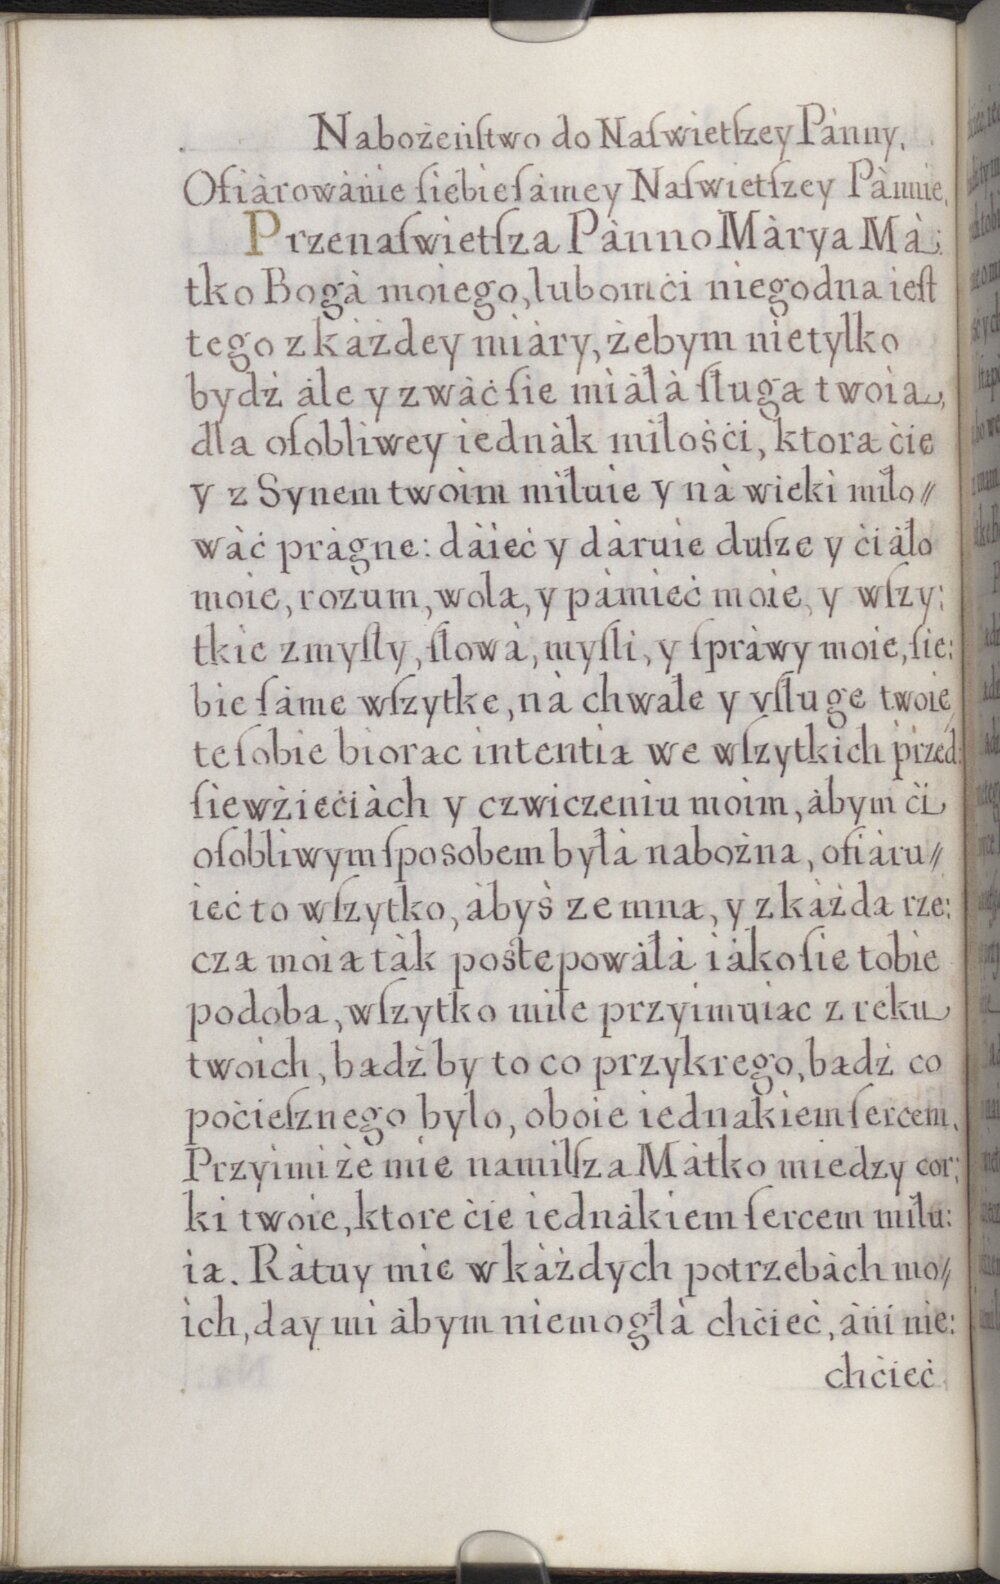 Nabożeńſtwo do Naſwietſzey Pànny.
Ofiàrowànie ſiebie ſàmey Naſwietſzey Pànnie.
Przenaſwietſza Pànno Màrya Mà:
tko Bogà moiego, lubom ċi niegodna ieſt
tego z kàżdey miàry, żebym nietylko
bydż àle y zwàċ ſie miàłà ſługa twoia,
dla oſobliwey iednàk miłoṡċi, ktora ċie
y z Synem twoim miłuie y nà wieki miło//
wàċ pràgne: dàieċ y dàruie duſze y ċiàło
moie, rozum, wola, y pàmieċ moie, y wſzy:
tkie zmyſły, ſłowà, myſli, y ſpràwy moie, ſie:
bie ſàme wſzytke, nà chwałe y vſługe twoie
te ſobie biorac intentia we wſzytkich przed:
ſiewżieċiàch y czwiczeniu moim, àbym ċi
oſobliwym ſposobem byłà nabożna, ofiàru//
ieċ to wſzytko, àbyṡ ze mna, y z kàżda rze:
cza moia tàk poſtepowàłà iàko ſie tobie
podoba, wſzytko mile przyimuiac z reku
twoich, badż by to co przykrego, badż co
poċieſznego bylo, oboie iednakiem ſercem.
Przyimiże mie namilſza Màtko miedzy cor:
ki twoie, ktore ċie iednàkiem ſercem miłu:
ia. Ràtuy mie w kàżdych potrzebàch mo//
ich, day mi àbym niemogłà chċieċ, àni nie:
chċieċ